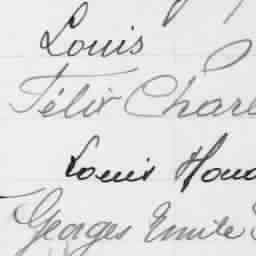 Louis
Félix Charl
Louis Hono
Georges Emile